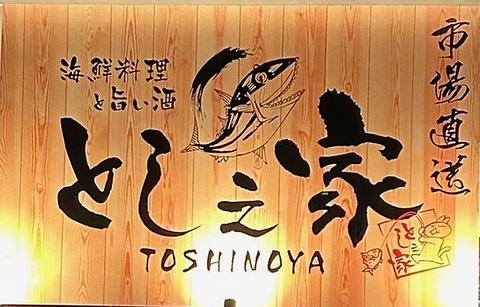 市場直送
海鮮料理
と旨い酒
とし之家
TOSHINOYA
とし之家